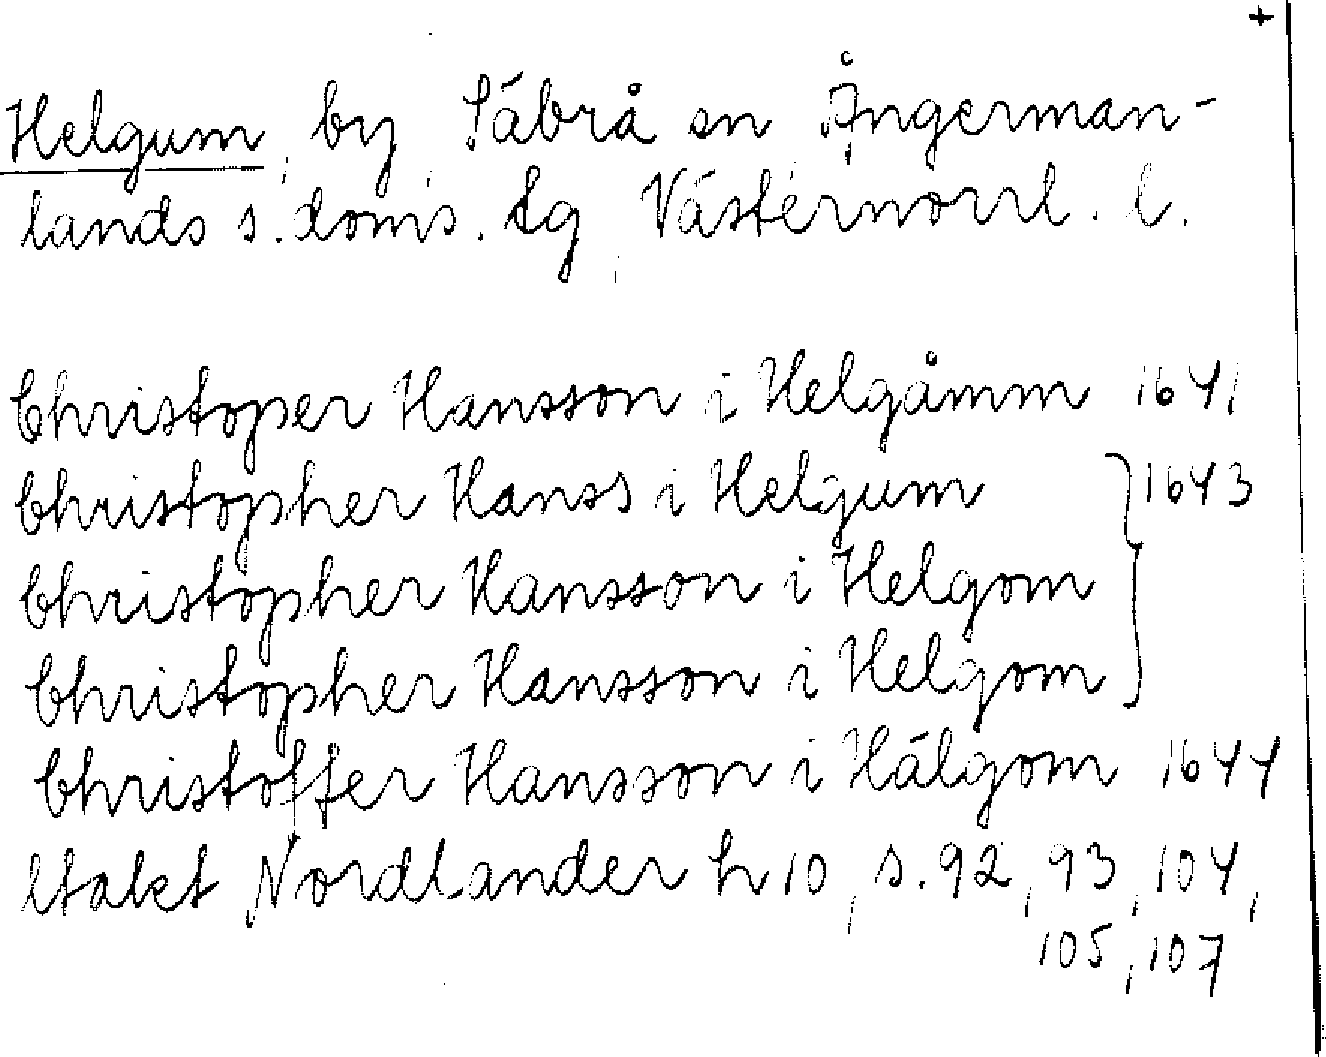 +
Helgum, by, Säbrå sn, Ångerman-
lands s. doms. tg, Västernorrl. l.
Christoper Hansson i Helgåmm 1641
Christopher Hanss i Helgum } 1643
Christopher Hansson i Helgom
Christopher Hansson i Helgom
Christoffer Hansson i Hälgom 1644
Nordlander h 10, s. 92, 93, 104,
105, 107